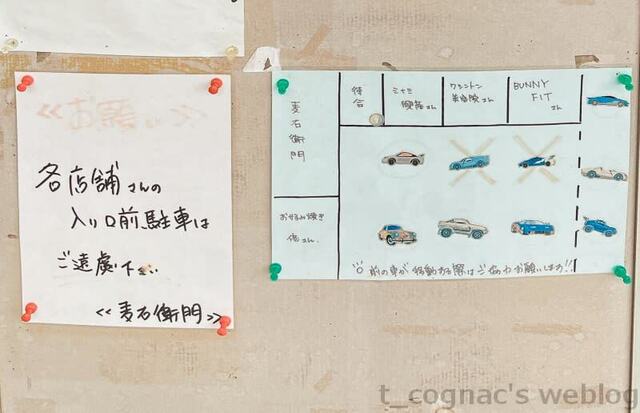 <<お願い>>
各店舗さんの
入り口前駐車は
ご遠慮下さい
<<麦右衛門>>
麦右衛門
待合
ミナミ
さん
ワシントン
美容院さん
BUNNY
FIT
さん
お好み焼き
さん
前の車が移動する際はごあわお願いします!!
t_cognac's weblog